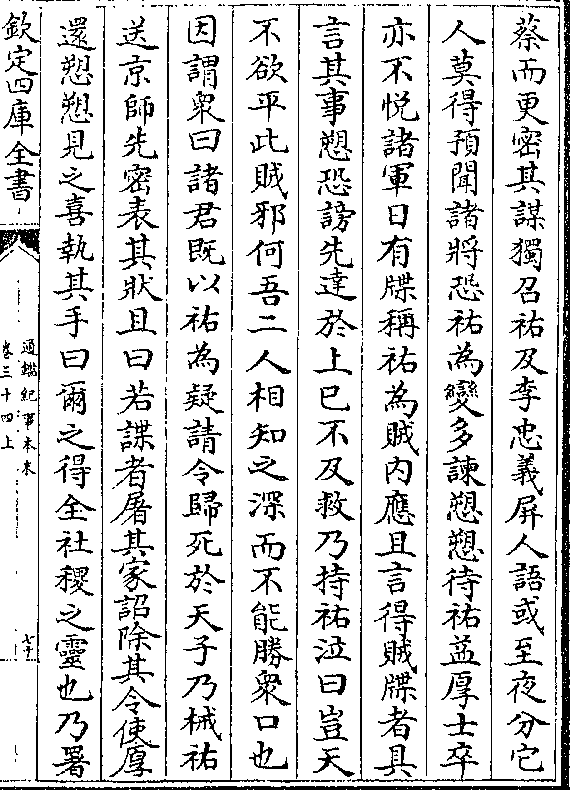 蔡而更密其謀獨召祐及李忠義屏人語或至夜分它
人莫得預聞諸將恐祐為變多諫愬愬待祐益厚士卒
亦不悅諸軍日有牒稱祐為賊内應且言得賊牒者具
言其事愬恐謗先達於上已不及救乃持祐泣曰豈天
不欲平此賊邪何吾二人相知之深而不能勝衆口也
因謂衆曰諸君既以祐為疑請令歸死於天子乃械祐
送京師先密表其狀且曰若諜者屠其家詔除其令使厚
還愬愬見之喜執其手曰爾之得全社稷之靈也乃署
欽定四庫全書
通鑑紀事本末
卷三十四上